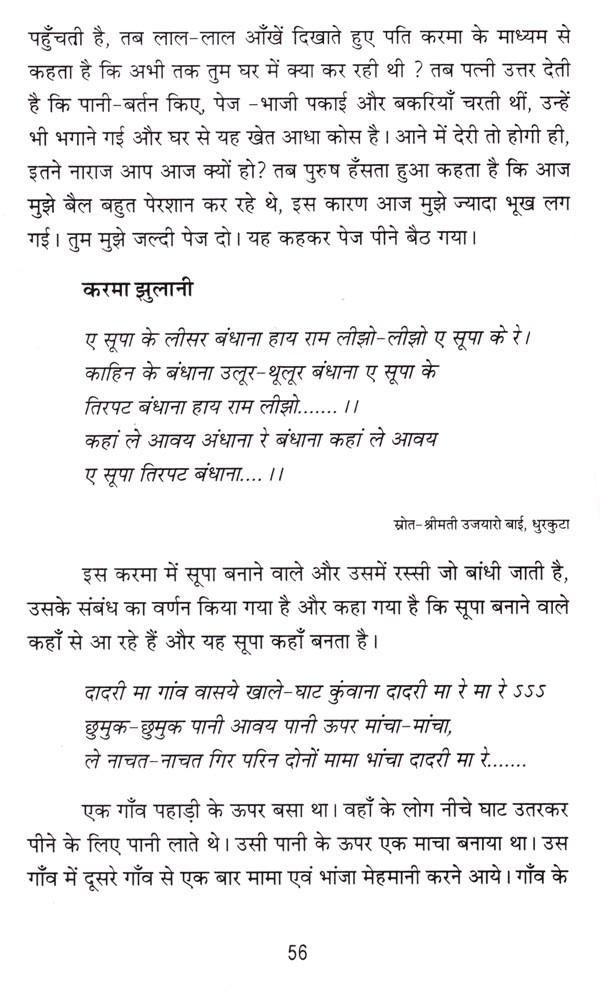 पहुँचती है, तब लाल-लाल आँखें दिखाते हुए पति करमा के माध्यम से
कहता है कि अभी तक तुम घर में क्या कर रही थी ? तब पत्नी उत्तर देती
है कि पानी-बर्तन किए, पेज -भाजी पकाई और बकरियाँ चरती थीं, उन्हें
भी भगाने गई और घर से यह खेत आधा कोस है। आने में देरी तो होगी ही,
इतने नाराज आप आज क्यों हो? तब पुरुष हँसता हुआ कहता है कि आज
मुझे बैल बहुत पेरशान कर रहे थे, इस कारण आज मुझे ज्यादा भूख लग
गई। तुम मुझे जल्दी पेज दो। यह कहकर पेज पीने बैठ गया।
करमा झुलानी
ए सूपा के लीसर बंधाना हाय राम लीझो-लीझो ए सूपा के रे।
काहिन के बंधाना उलूर-थूलूर बंधाना ए सूपा के
तिरपट बंधाना हाय राम लीझो.......।।
कहां ले आवय अंधाना रे बंधाना कहां ले आवय
ए सूपा तिरपट बंधाना....।।
स्रोत-श्रीमती उजयारो बाई, धुरकुटा
इस करमा में सूपा बनाने वाले और उसमें रस्सी जो बांधी जाती है,
उसके संबंध का वर्णन किया गया है और कहा गया है कि सूपा बनाने वाले
कहाँ से आ रहे हैं और यह सूपा कहाँ बनता है।
दादरी मा गांव वासये खाले-घाट कुंवाना दादरी मा रे मा रे ऽऽऽ
छुमुक-छुमुक पानी आवय पानी ऊपर मांचा-मांचा,
ले नाचत-नाचत गिर परिन दोनों मामा भांचा दादरी मा रे.......
एक गाँव पहाड़ी के ऊपर बसा था। वहाँ के लोग नीचे घाट उतरकर
पीने के लिए पानी लाते थे। उसी पानी के ऊपर एक माचा बनाया था। उस
गाँव में दूसरे गाँव से एक बार मामा एवं भांजा मेहमानी करने आये। गाँव के
56